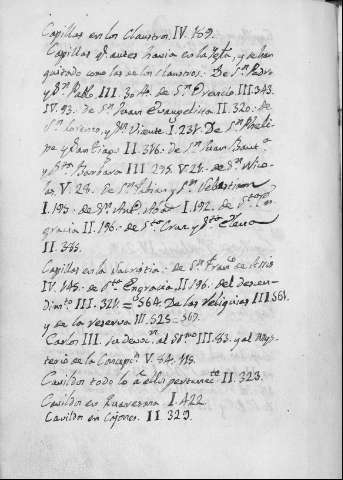 Capillas en los Claustros. IV. 169.
Capillas q.e antes havia en la Igla, y se han
quitado como las de los claustros: De S.n Pedro
y S.n Pablo. III. 304. de S.n Urencio III. 343.
IV. 93. de S.n Juan Evangelista II. 320: de
S.n Lorenzo, y S.n Vicente I. 237. De S.n Pheli-
pe y Santiago II. 376: de S.n Juan Baut.a
y S.ta Barbara III. 275. V. 28. de S.n Nico-
las V. 28. de S.n Fabian y S.n Sebastian
I. 195. de S.n Ant. Abad I. 192. de S.ta En-
gracia II. 196. de S.ta Cruz y S.ta Elena
II. 385.
Capillas en la Sacristia: de S.n Fran.co de Asis
IV. 145. de S.ta Engracia, II. 196. del Descen-
dim.to III. 321. 564. De las Reliquias III. 564.
y de la reserva III. 525. 569.
Carlos III. su devoc.n al SS.mo III. 83. y al mys-
terio de la Concepc.n V. 54. 115.
Cavildos todo lo a ellos pertenec.te II. 323.
Cavildos en Quaresma. I. 422
Cavildos en Cajones. II. 329.